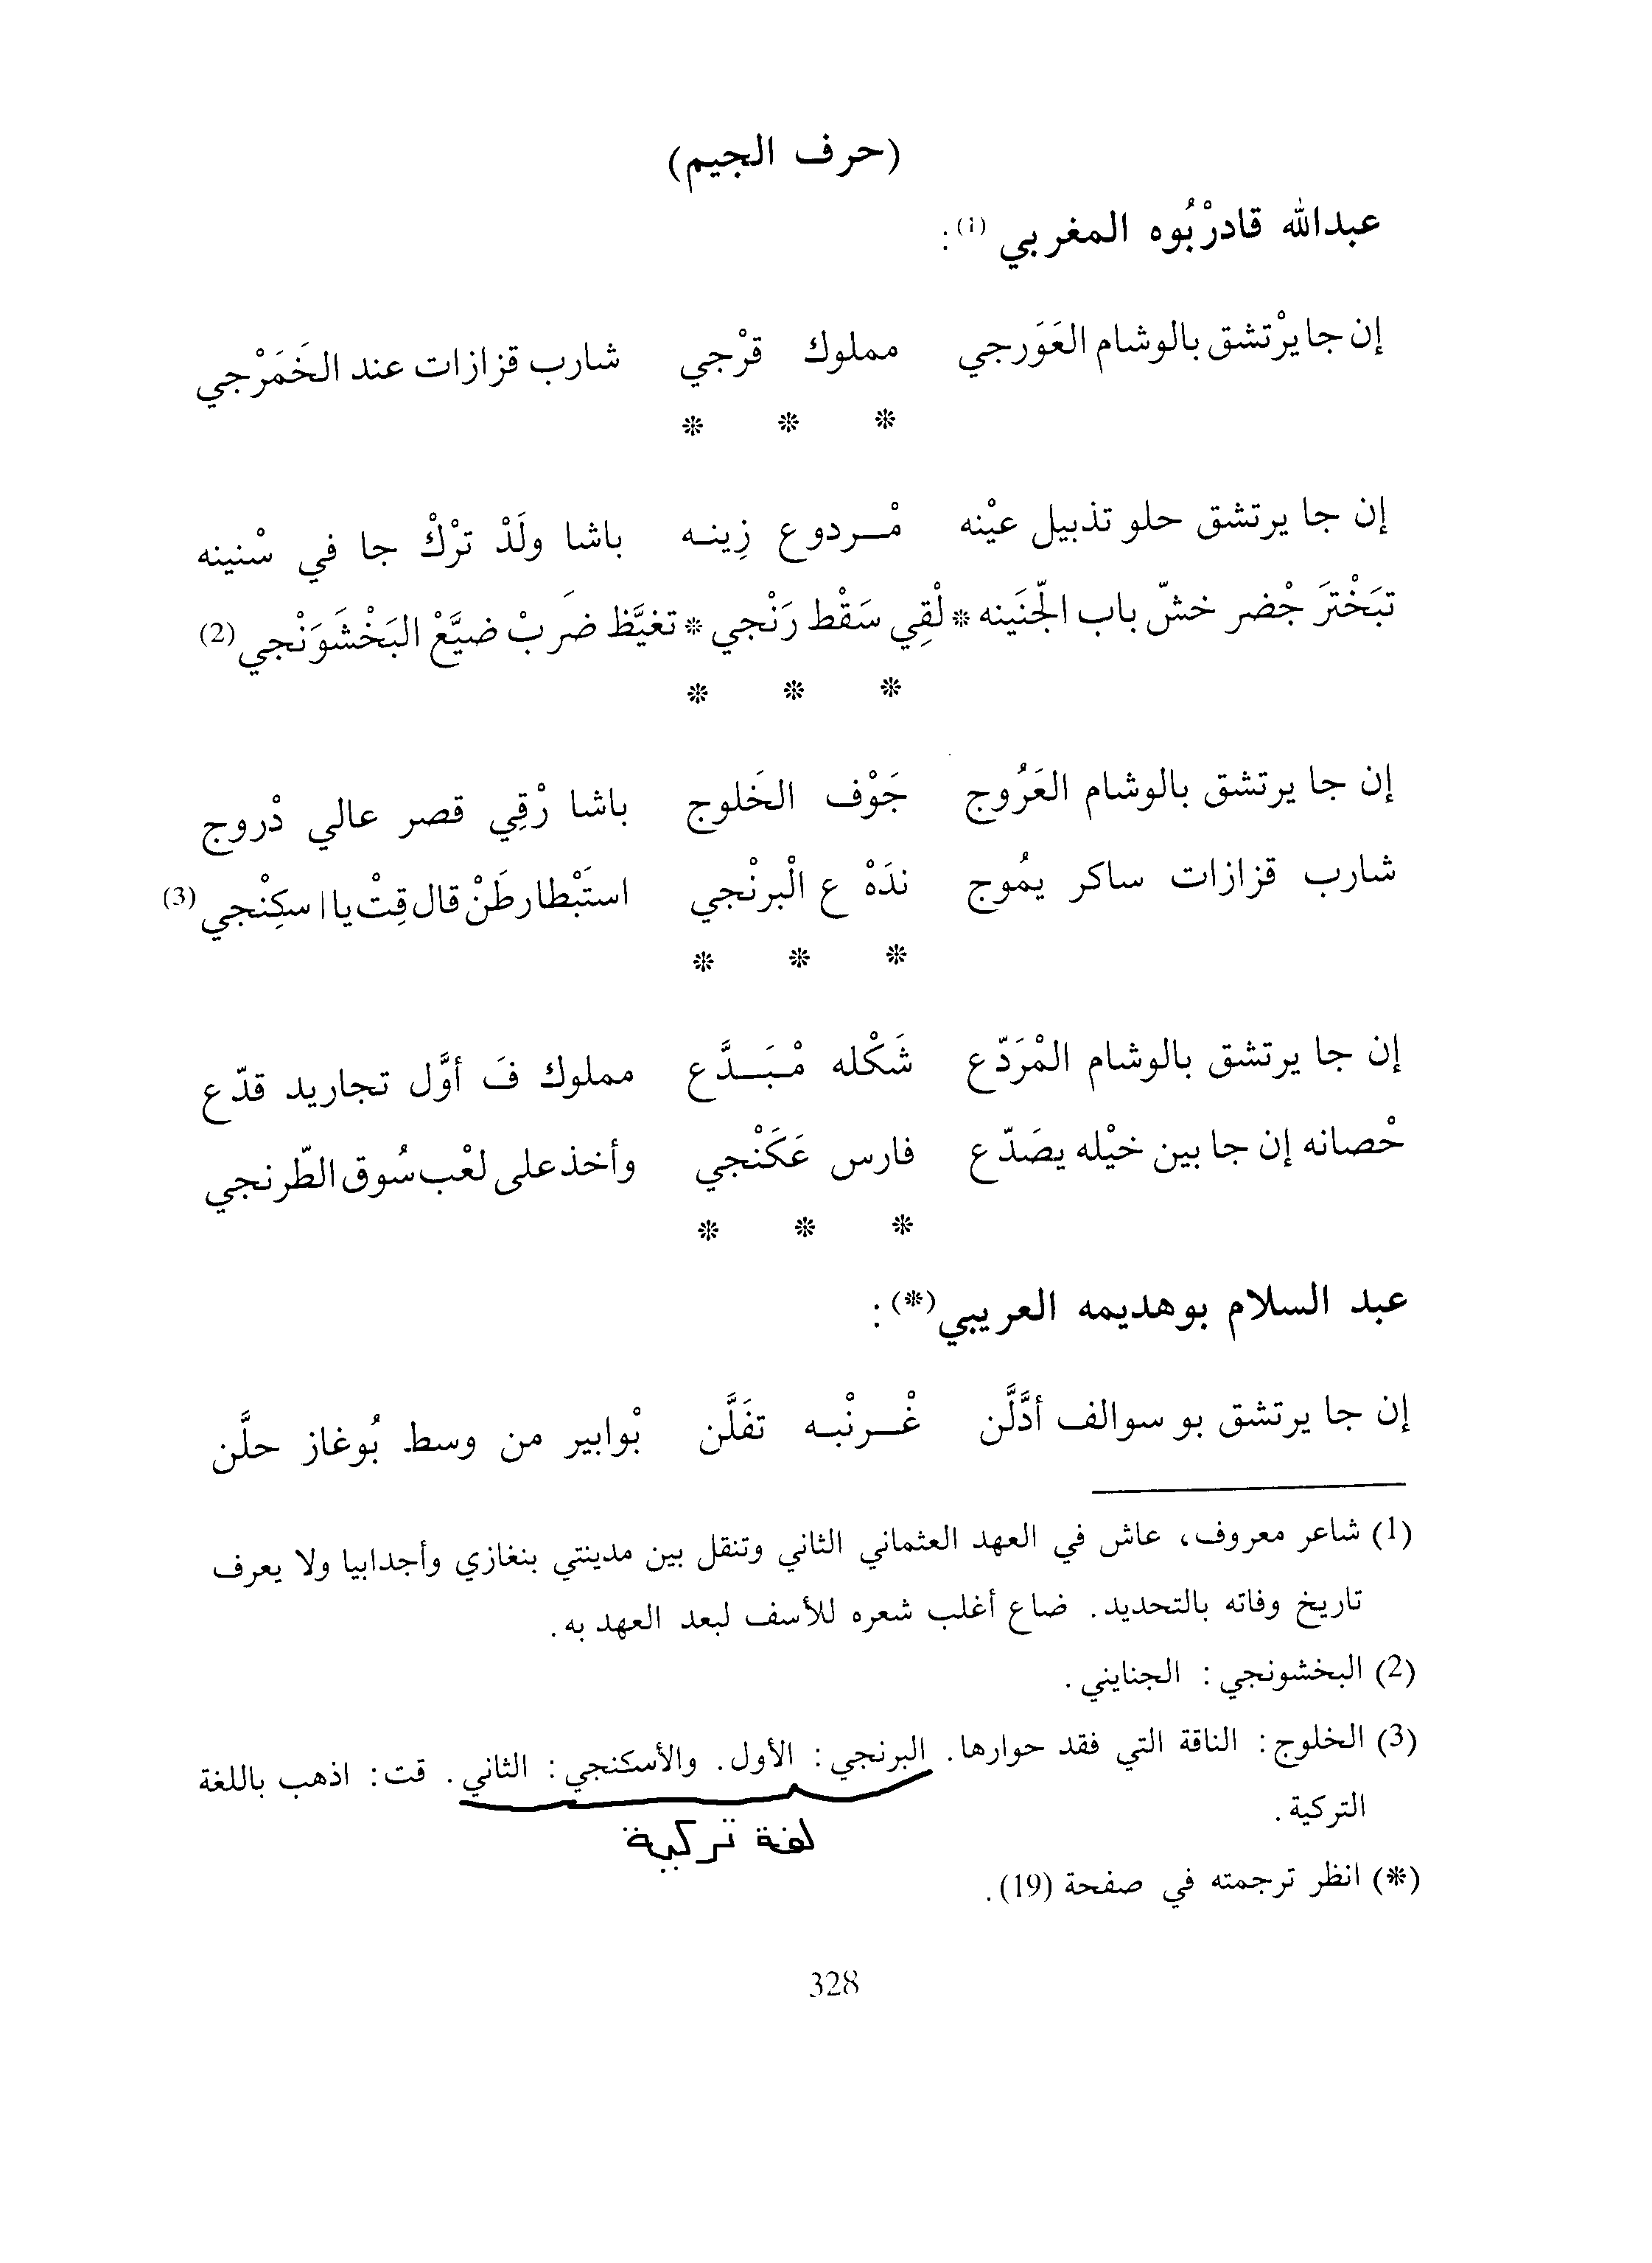 (حرف الجيم)
عبدالله قادرْبُوه المغربي (1):
إن جا يرْتشق بالوشام العَوَرجي مملوك قرْجي شارب قزازات عند الخَمَرْجي
* * *
إن جا يرتشق حلو تذبيل عيْنه مْـردوع زِينـه باشا ولَدْ ترْكْ جا في سْنينه
تبَخْترَ جْضر خشّ باب الجّنَينه * لْقِي سَقْط رَنْجي * تغيَّظ ضَربْ ضيَّعْ البَخْشَوَنْجي (2)
* * *
إن جا يرتشق بالوشام العَرُوج جَوْف الخَلوج باشا رْقِي قصر عالي دْروج
شارب قزازات ساكر يمُوج ندَهْ ع الْبرنْجي استَبْطا رطَنْ قال قِتْ يا اسكِنْجي (3)
* * *
إن جا يرتشق بالوشام المْرَدّع شَكْله مْـبَـدَّع مملوك فَ أوَّل تجاريد قدّع
حْصانه إن جا بين خيْله يصَدّع فارس عَكَنْجي وأخذ على لعْب سُوق الطّرنجي
* * *
عبد السلام بوهديمه العريبي (*):
إن جا يرتشق بو سوالف أدَّلَّن غْـرنْبـه تفَلَّن بْوابير من وسط بُوغاز حلَّن
(1) شاعر معروف، عاش في العهد العثماني الثاني وتنقل بين مدينتي بنغازي وأجدابيا ولا يعرف
تاريخ وفاته بالتحديد. ضاع أغلب شعره للأسف لبعد العهد به.
(2) البخشونجي: الجنايني.
(3) الخلوج: الناقة التي فقد حوارها. البرنجي: الأول. والأسكنجي: الثاني. قت: اذهب باللغة
التركية.
لغة تركية
(*) انظر ترجمته في صفحة (19).
328